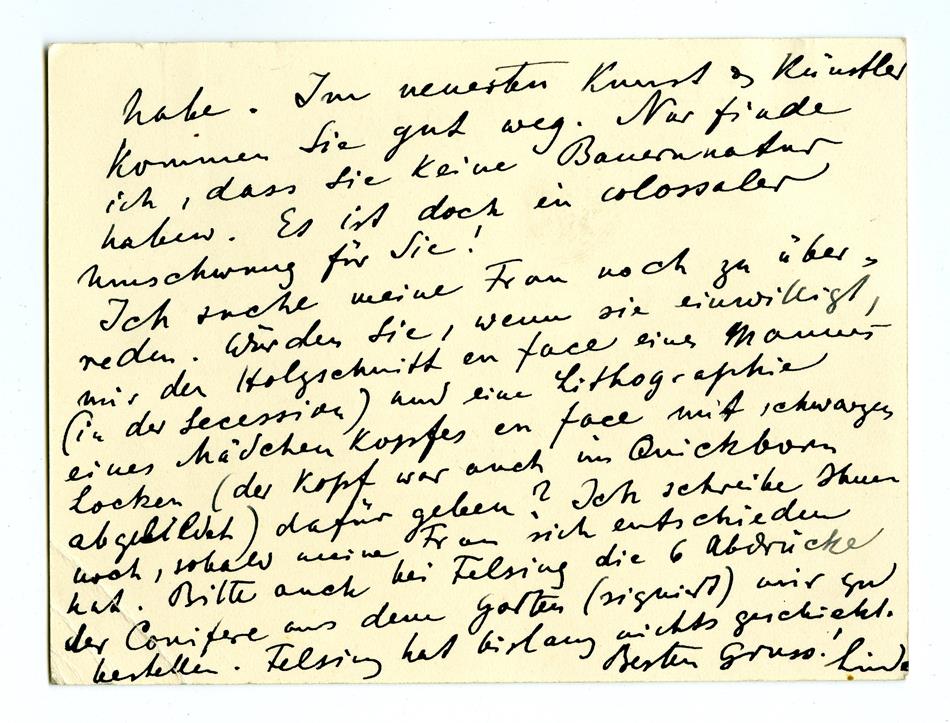 habe. Im neuesten Kunst & Künstler
kommen Sie gut weg. Nur finde
ich, dass Sie keine Bauernnatur
haben. Es ist doch ein colossaler
Umschwung für Sie!
Ich suche meine Frau noch zu über-
reden. Würden Sie, wenn sie einwilligt,
mir den Holzschnitt en face eines Mannes
(in der Secession) und eine Lithographie
eines Mädchen Kopfes en face mit schwarzen
Locken (der Kopf war auch im Quickborn
abgebildet) dafür geben? Ich schreibe Ihnen
noch, sobald meine Frau sich entschieden
hat. Bitte auch bei Felsing die 6 Abdrücke
der Conifere aus dem Garten (signirt) mir gut
bestellen. Felsing hat bislang nichts geschickt.
Besten Gruss! Linde